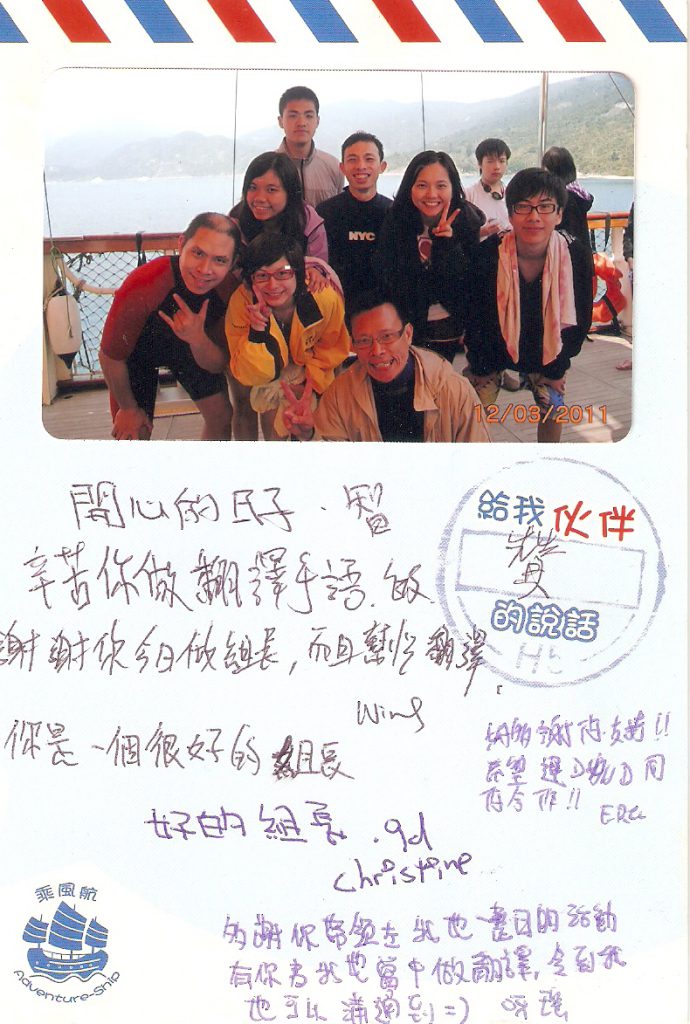 NYC
12/03/2011
開心的日子.智
給我伙伴
贊
的說話
H5
辛苦你做翻譯手語.
謝謝你今日做組長,而且幫忙翻譯.
Wing
你是一個很好的組長
多謝你支持!!
希望遲D
合作!!
Eric
好的組長.gd
Christine
多謝你帶領左我地一整日的活動
有你為我地當中做翻譯,令到我
地可以溝通到=)
乘風航
Adventure-Ship